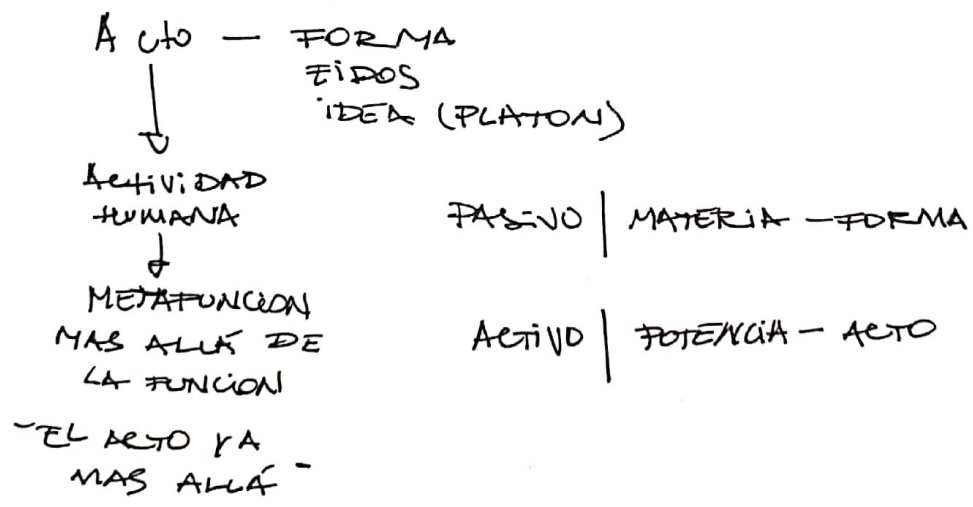 Acto — FORMA
EIDOS
IDEA (PLATON)
ACTIVIDAD
HUMANA
METAFUNCION
MAS ALLÁ DE
LA FUNCION
"EL ACTO YA
MAS ALLÁ"
PASIVO | MATERIA — FORMA
ACTIVO | POTENCIA — ACTO